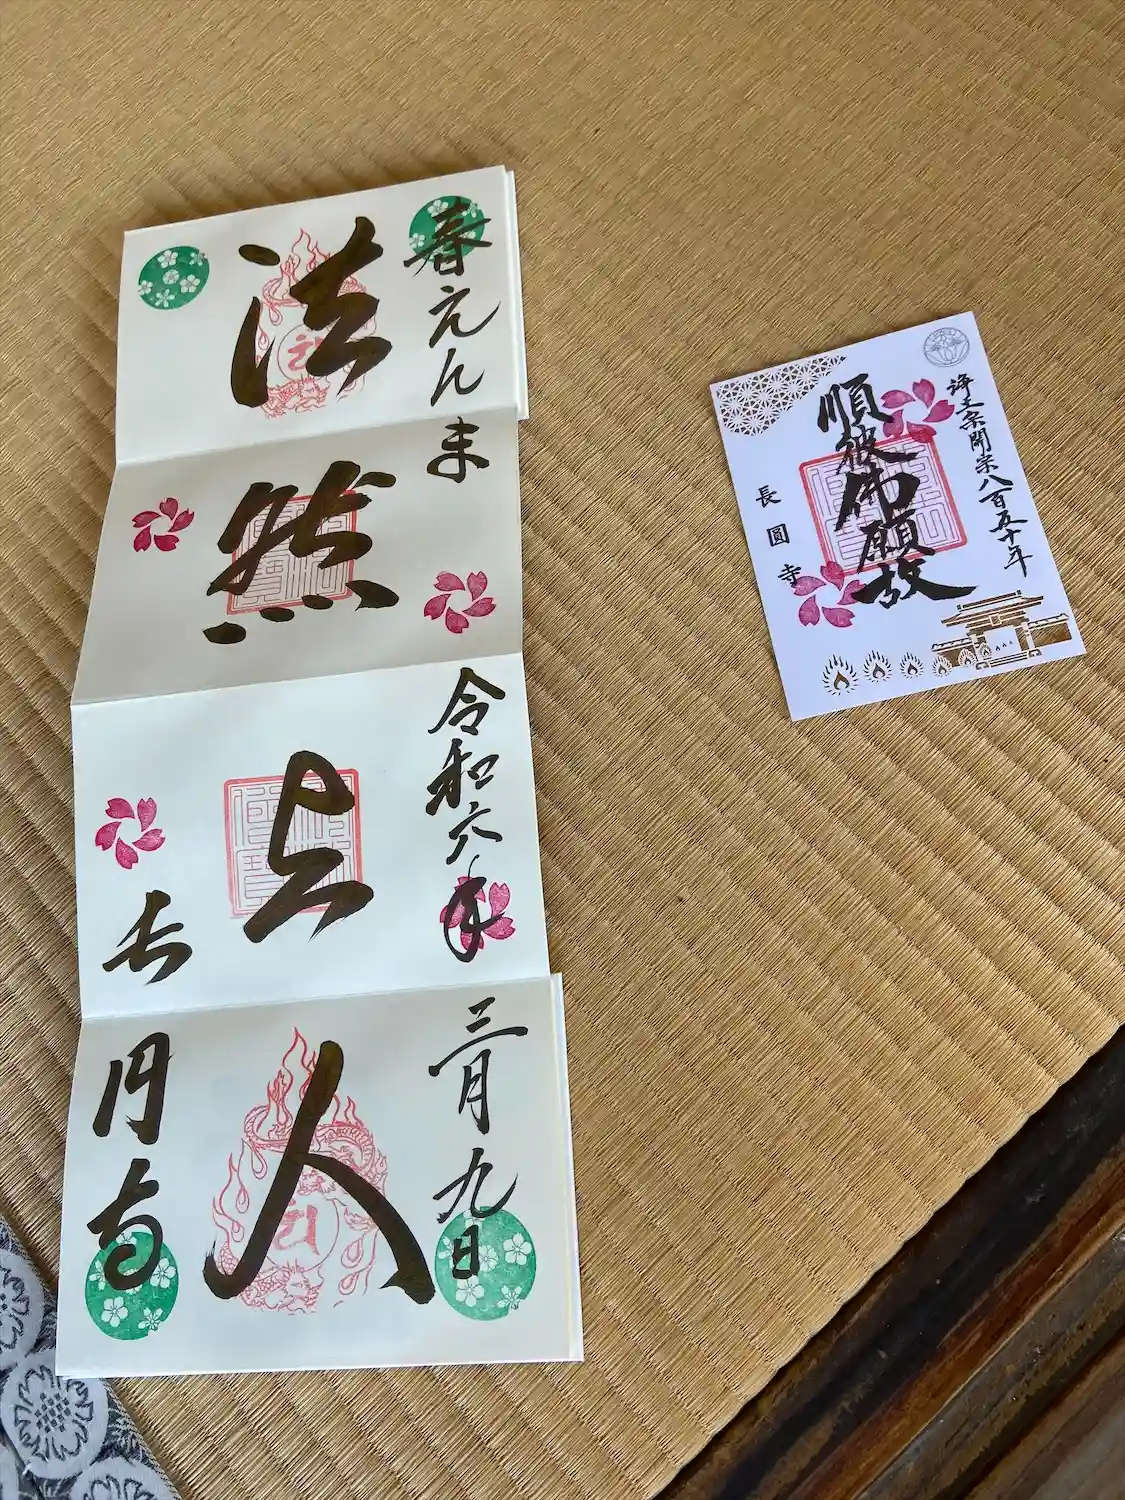 春えんま
令和六年
三月九日
法然上人
长円寺
浄土宗開宗八百五十年
順彼佛願故
長圓寺